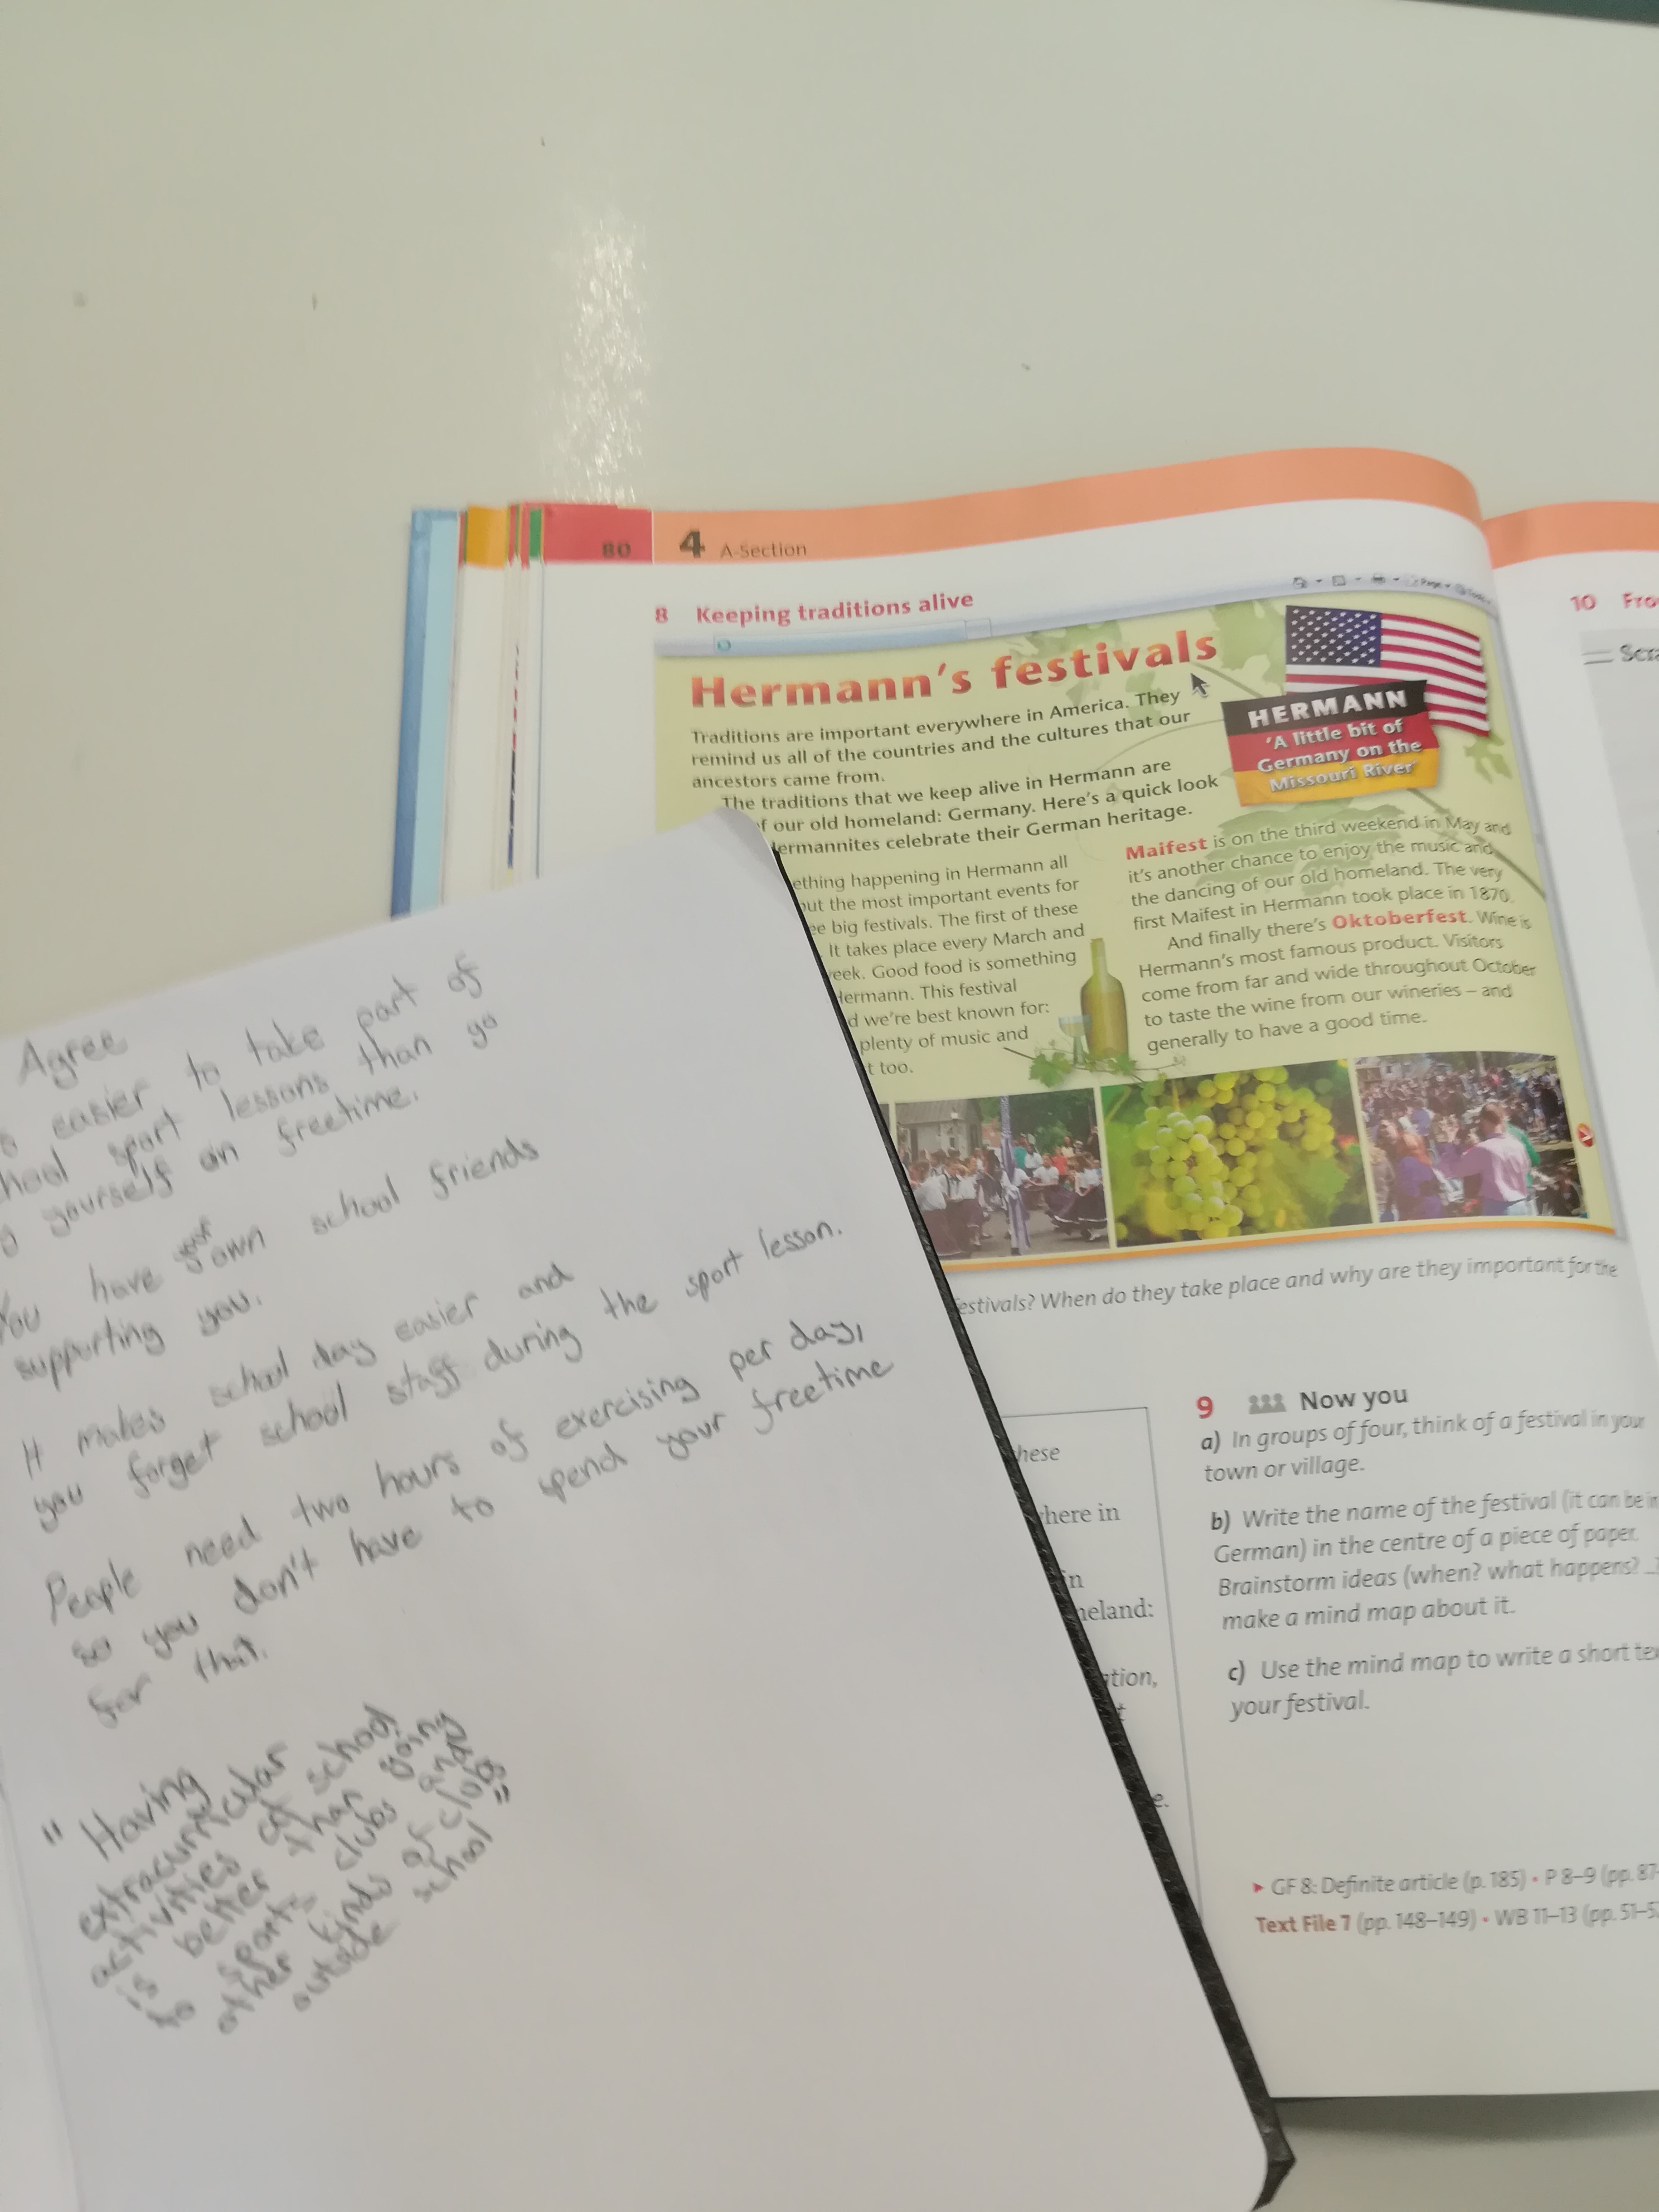 80 4 A-Section
8 Keeping traditions alive
Hermann's festivals
Traditions are important everywhere in America. They
remind us all of the countries and the cultures that our
ancestors came from.
The traditions that we keep alive in Hermann are
of our old homeland: Germany. Here's a quick look
ermannites celebrate their German heritage.
HERMANN
'A little bit of
Germany on the
Missouri River'
ething happening in Hermann all
ut the most important events for
ee big festivals. The first of these
It takes place every March and
eek. Good food is something
Hermann. This festival
d we're best known for:
plenty of music and
t too.
Maifest is on the third weekend in May and
it's another chance to enjoy the music and
the dancing of our old homeland. The very
first Maifest in Hermann took place in 1870.
And finally there's Oktoberfest. Wine is
Hermann's most famous product. Visitors
come from far and wide throughout October
to taste the wine from our wineries – and
generally to have a good time.
estivals? When do they take place and why are they important for the
hese
here in
in
neland:
tion,
e.
9 Now you
a) In groups of four, think of a festival in your
town or village.
b) Write the name of the festival (it can be in
German) in the centre of a piece of paper.
Brainstorm ideas (when? what happens? ...
make a mind map about it.
c) Use the mind map to write a short tex
your festival.
► GF 8: Definite article (p. 185) • P 8–9 (pp. 87
Text File 7 (pp. 148–149) • WB 11–13 (pp. 51–5
10 Fro
Scra
Agree
easier to take part of
hool sport lessons than go
yourself on freetime.
You have your own school friends
supporting you.
It makes school day easier and
you forget school staff during the sport lesson.
People need two hours of exercising per day,
so you don't have to spend your freetime
for that.
"Having
extracurricular
activities at school
is better than going
to sports clubs and
other kinds of clubs
outside school"